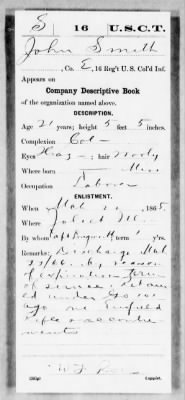 S | 16 | U.S.C.T.
John Smith
, Co. E, 16 Reg't U. S. Col'd Inf.
Appears on
Company Descriptive Book
of the organization named above.
DESCRIPTION.
Age 21 years; height 5 feet 5 inches.
Complexion Col
Eyes Haz; hair Wooly
Where born Miss
Occupation Laborer
ENLISTMENT.
When 1865.
Where Joliet Ill
By whom Capt term 1 y'rs.
Remarks: Discharge
by reason
of expiration term
of service; retained
under
one Enfield
rifle accoutre
ments
Copyist.